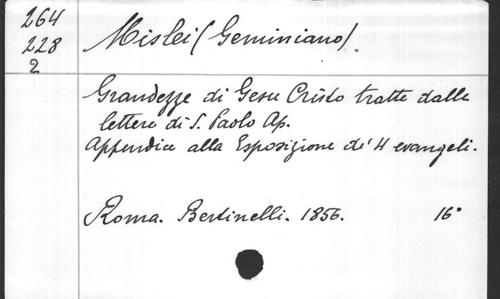 264
228
2
Mislei (Geminiano).
Grandezze di Gesu Cristo tratte dalle
lettere di S. Paolo Ap.
Appendice alla Esposizione de' 4 evangeli.
Roma. Bertinelli. 1856. 16°